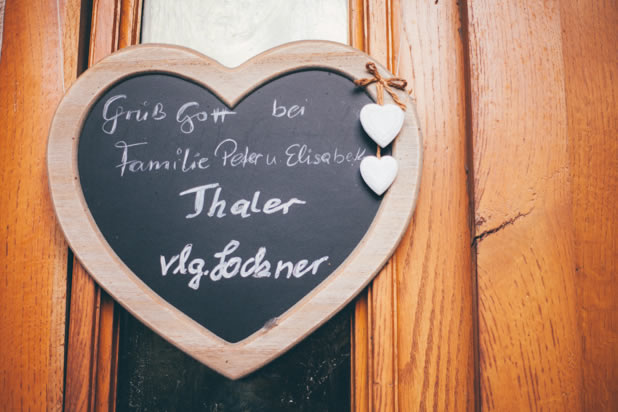 Grüß Gott bei
Familie Peter u Elisabeth
Thaler
vlg. Lockner